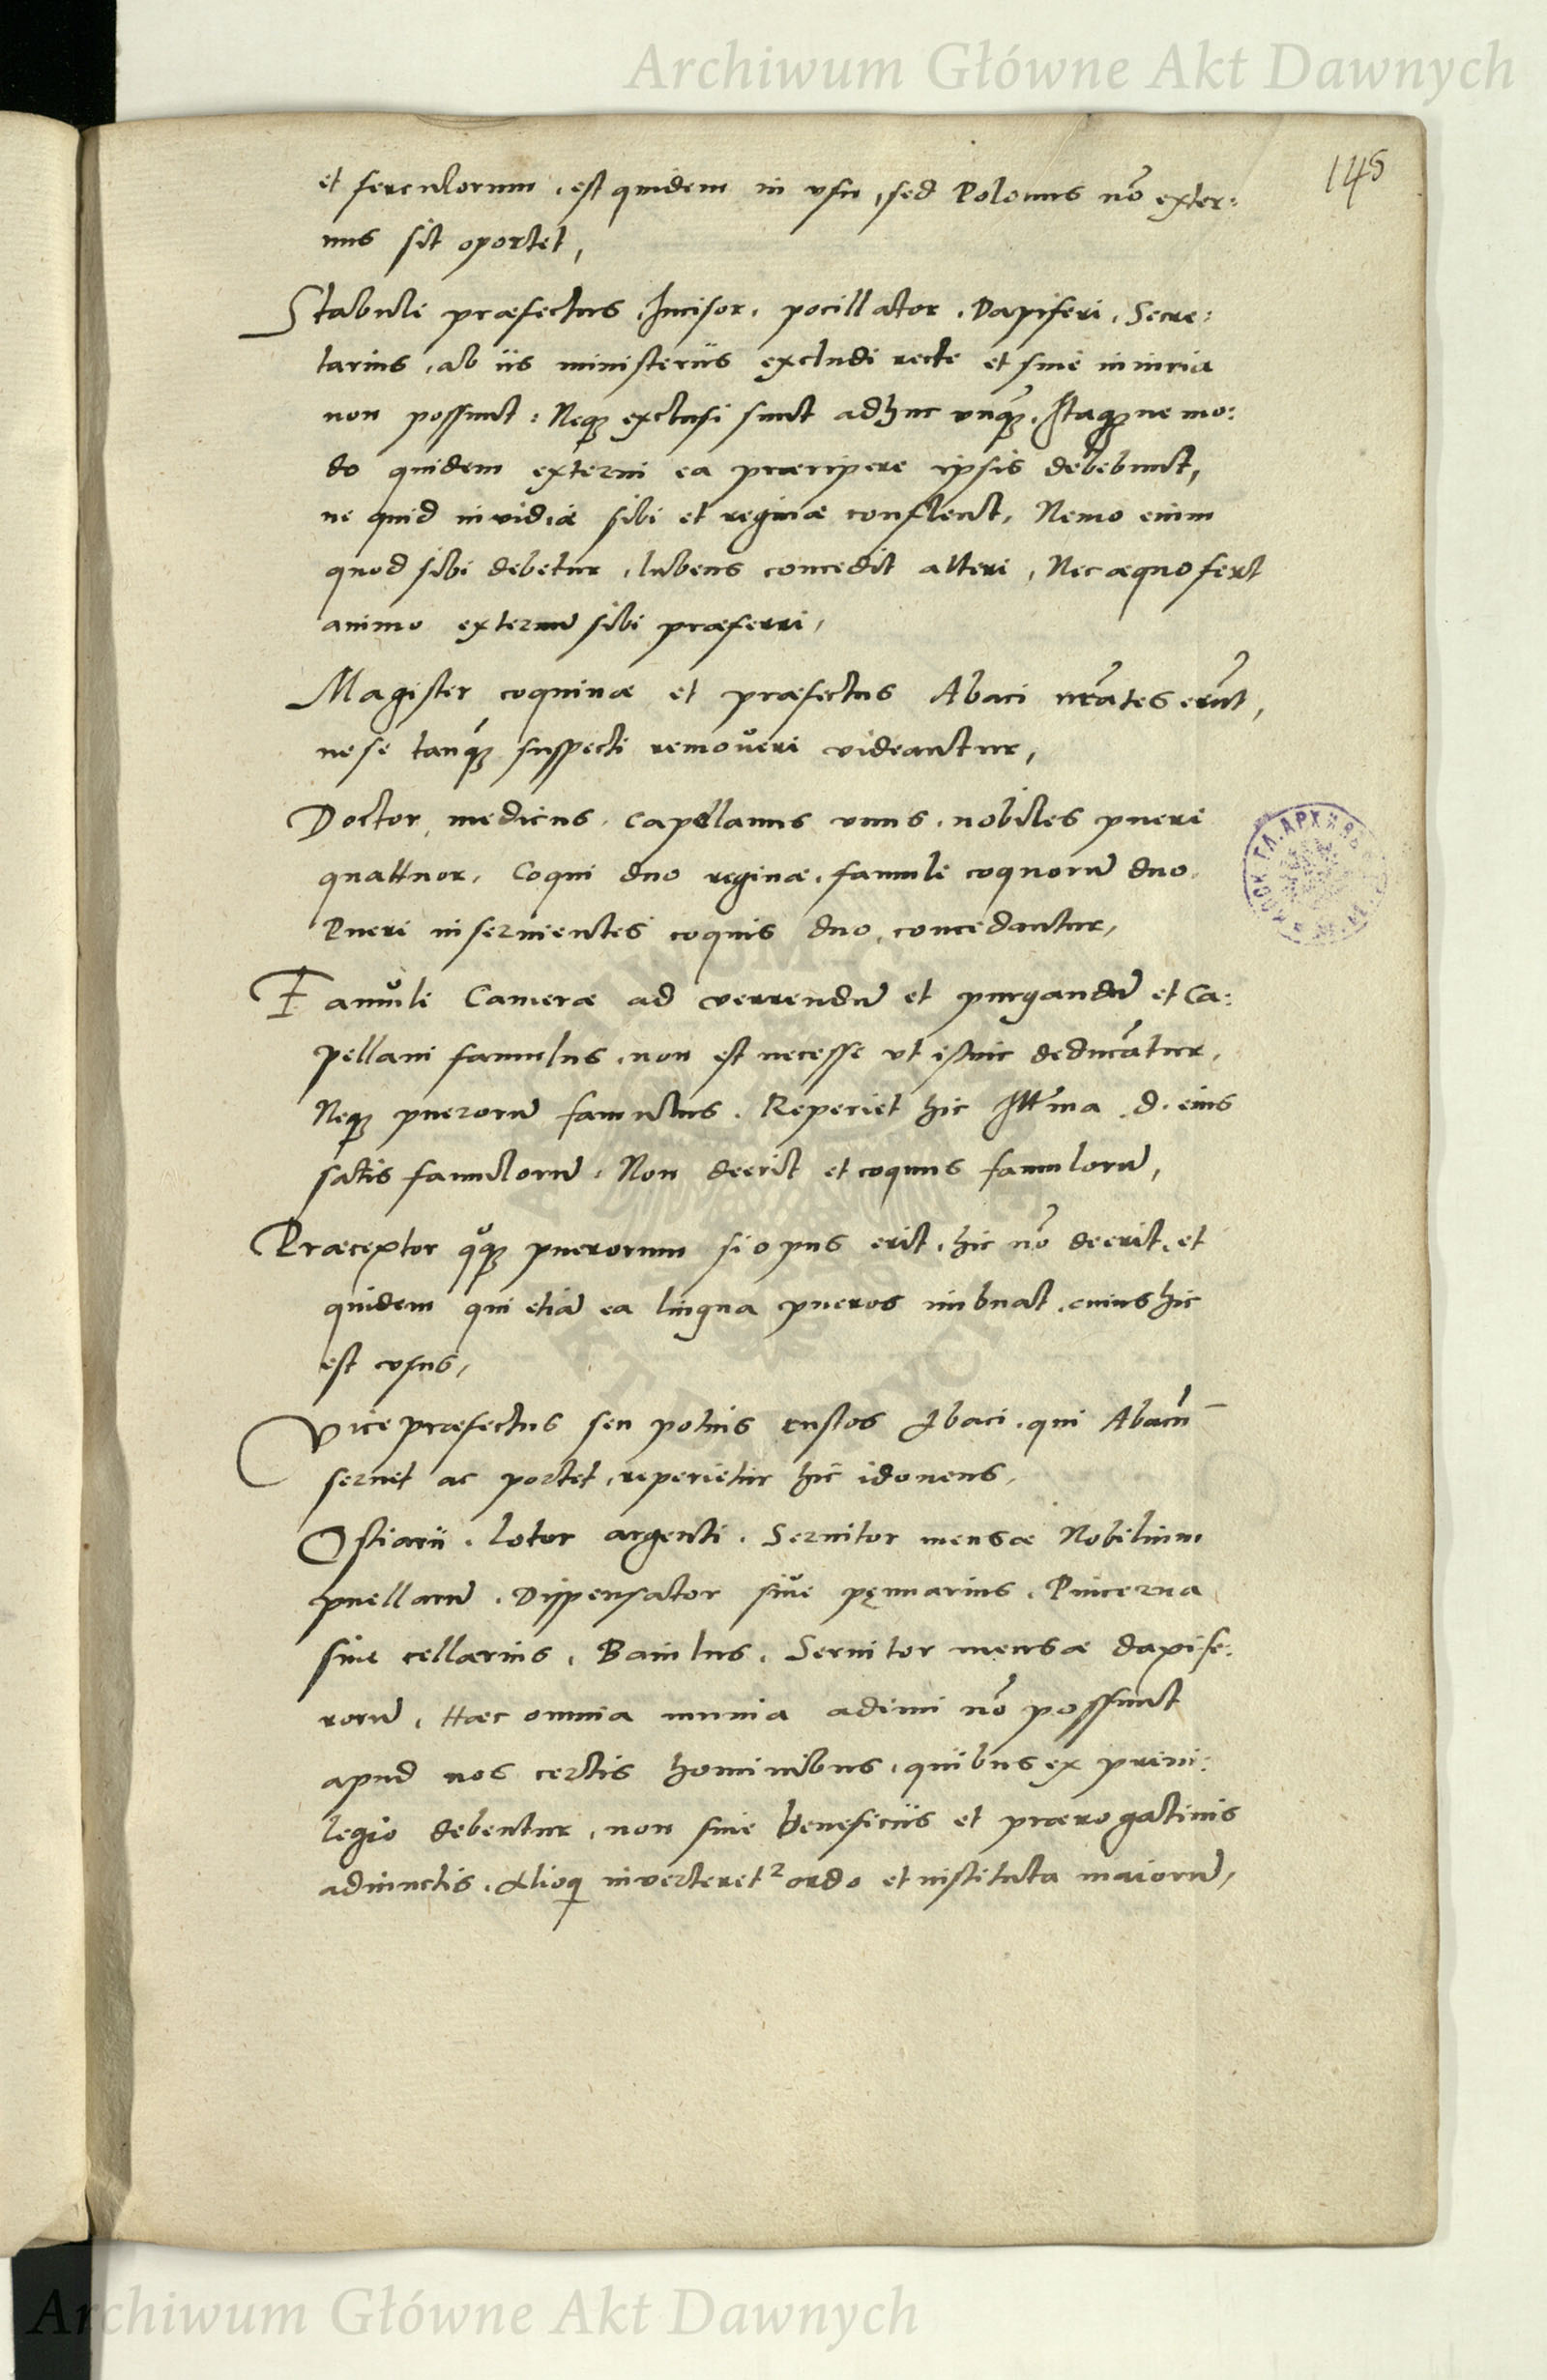 Archiwum Główne Akt Dawnych
145
et ferculorum, est quidem in vsu, sed Polonus nõ exter:
nus sit oportet,
Stabuli præfectus, Incisor, pocillator, Dapiferi, Secre:
tarius, ab iis ministeriis excludi recte et sine iniuria
non possunt: Neqꝫ exclusi sunt adhuc vnqꝫ̃. Itaqꝫ ne mo:
do quidem externi ea præripere ipsis debebunt,
ne quid invidiæ sibi et reginæ conflent, Nemo enim
quod sibi debetur, lubens concedit alteri, Nec æquo fert
animo externũ sibi præferri,
Magister coquinæ et præfectus Abaci nr̃ates erũt,
ne se tanqꝫ̃ suspecti removeri videantur,
Doctor medicus, Capellanus vnus, nobiles pueri
quattuor, Coqui duo reginæ, famuli coquorũ duo,
Pueri inseruientes coquis duo, concedantur,
Famuli Cameræ ad verrendũ et purgandũ et Ca:
pellani famulus, non est necesse vt istuc deducãtur,
Neqꝫ puerorũ famulus. Reperiet hic Ill̃ma. d. eius
satis famulorũ, Non deerit et coquus famulorũ,
Præceptor qͦqꝫ puerorum si opus erit, hic nõ deerit, et
quidem qui etiã ea lingua pueros imbuat, cuius hic
est vsus,
Vice præfectus seu potius custos Abaci, qui Abacũ
seruet ac portet, reperietur hic idoneus,
Ostiarii, lotor argenti, Seruitor mensæ Nobilium
puellarũ, Dispensator sive pęnuarius, Pincerna
siue cellarius, Baiulus, Seruitor mensæ dapife:
rorũ, Hæc omnia munia adimi nõ possunt
apud nos certis hominibus, quibus ex priui:
legio debentur, non sine beneficiis et prærogatiuis
adiunctis, Alioqi inverteret² ordo et instituta maiorũ,
Archiwum Główne Akt Dawnych